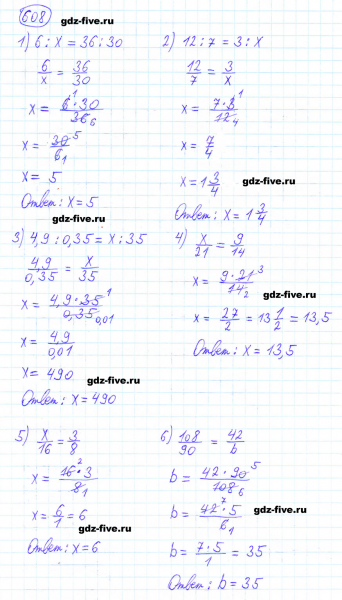 608
gdz-five.ru
1) 6 : x = 36 : 30
6/x = 36/30
x = 6¹·30/36₆
x = 30⁵/6₁
x = 5
Ответ: x = 5
gdz-five.ru
2) 12 : 7 = 3 : x
12/7 = 3/x
x = 7·3¹/12₄
x = 7/4
x = 1 3/4
gdz-five.ru
Ответ: x = 1 3/4
3) 4,9 : 0,35 = x : 35
4,9/0,35 = x/35
x = 4,9·35¹/0,35₀,₀₁
x = 4,9/0,01
x = 490
gdz-five.ru
Ответ: x = 490
4) x/21 = 9/14
x = 9·21³/14₂
gdz-five.ru
x = 27/2 = 13 1/2 = 13,5
Ответ: x = 13,5
gdz-five.ru
5) x/16 = 3/8
x = 16²·3/8₁
x = 6/1 = 6
gdz-five.ru
Ответ: x = 6
6) 108/90 = 42/b
b = 42·90⁵/108₆
b = 42⁷·5/6₁
gdz-five.ru
b = 7·5/1 = 35
Ответ: b = 35